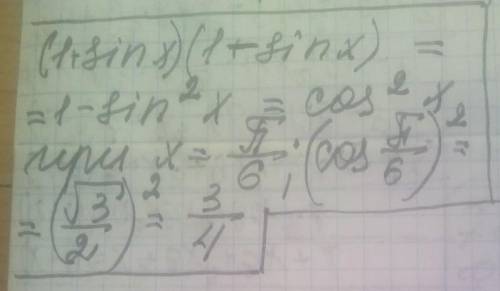 (1+sinx)(1-sinx) =
=1-sin²x = cos²x
при x = π/6; (cos π/6)² =
= (√3/2)² = 3/4